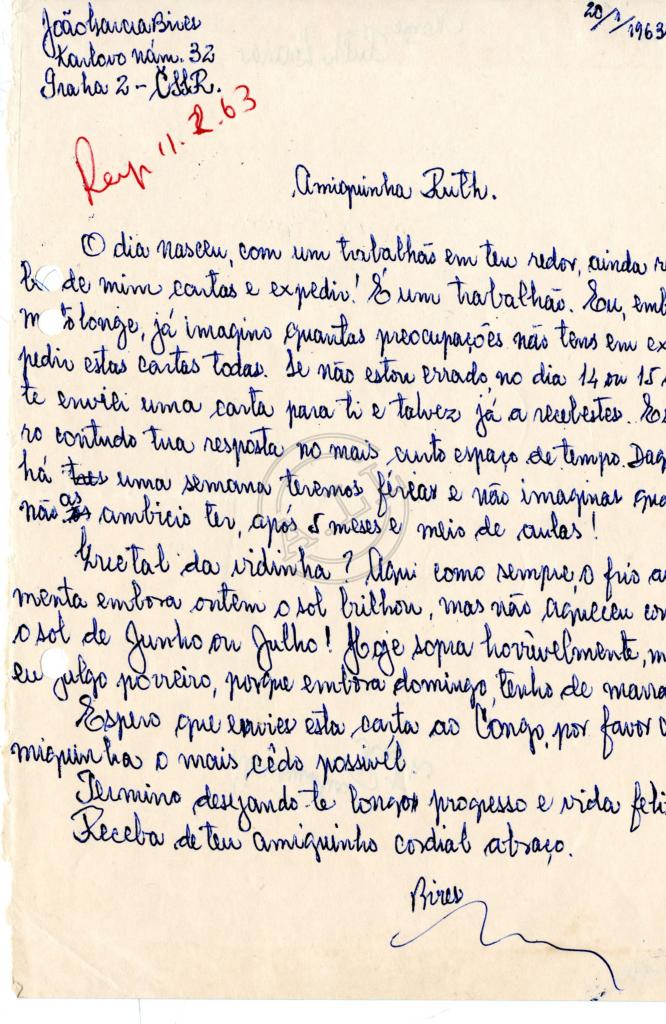 João Garcia Bires
Karlovo Nám. 32
Praha 2 - ČSSR.
20/1/1963
Resp 11.2.63
Amiguinha Ruth.
O dia nasceu, com um trabalhão em teu redor, ainda re
be de mim cartas e expedir! É um trabalhão. Eu, emb
longe, já imagino quantas preocupações não tens em ex
pedir estas cartas todas. Se não estou errado, no dia 14 ou 15
te enviei uma carta para ti e talvez já a recebestes. Es
ro contudo tua resposta no mais curto espaço de tempo. Daq
há uma semana teremos férias e não imaginas qua
não as ambicio ter, após 5 meses e meio de aulas!
Que tal da vidinha? Aqui como sempre, o frio au
menta embora ontem o sol brilhou, mas não aqueceu com
o sol de Junho ou Julho! Hoje sopra horrìvelmente, m
eu julgo porreiro, porque embora domingo, tenho de marra
Espero que envies esta carta ao Congo, por favor a
miguinha o mais cêdo possivél
Termino desejando-te longos progresso e vida feli
Receba de teu amiguinho cordial abraço.
Bires